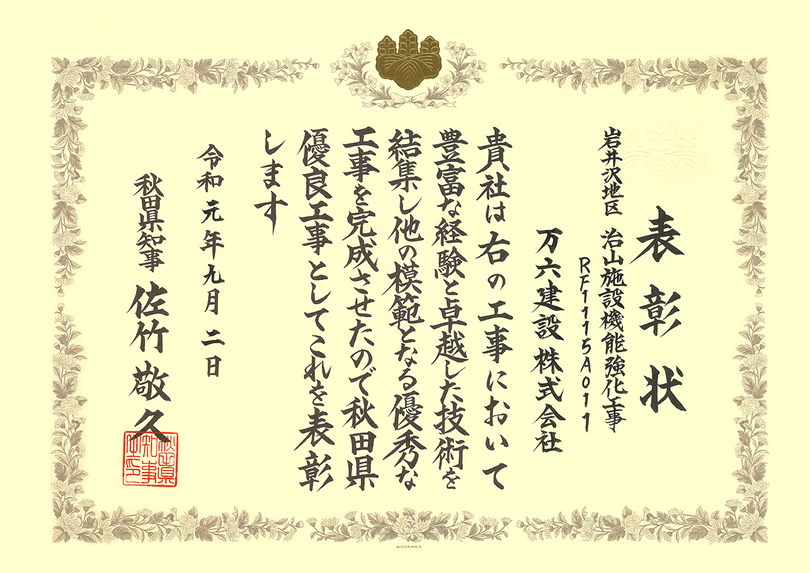 表彰状
岩井沢地区 治山施設機能強化工事
RF1115A011
万六建設株式会社
貴社は右の工事において
豊富な経験と卓越した技術を
結集し他の模範となる優秀な
工事を完成させたので秋田県
優良工事としてこれを表彰
します
令和元年九月二日
秋田県知事 佐竹敬久